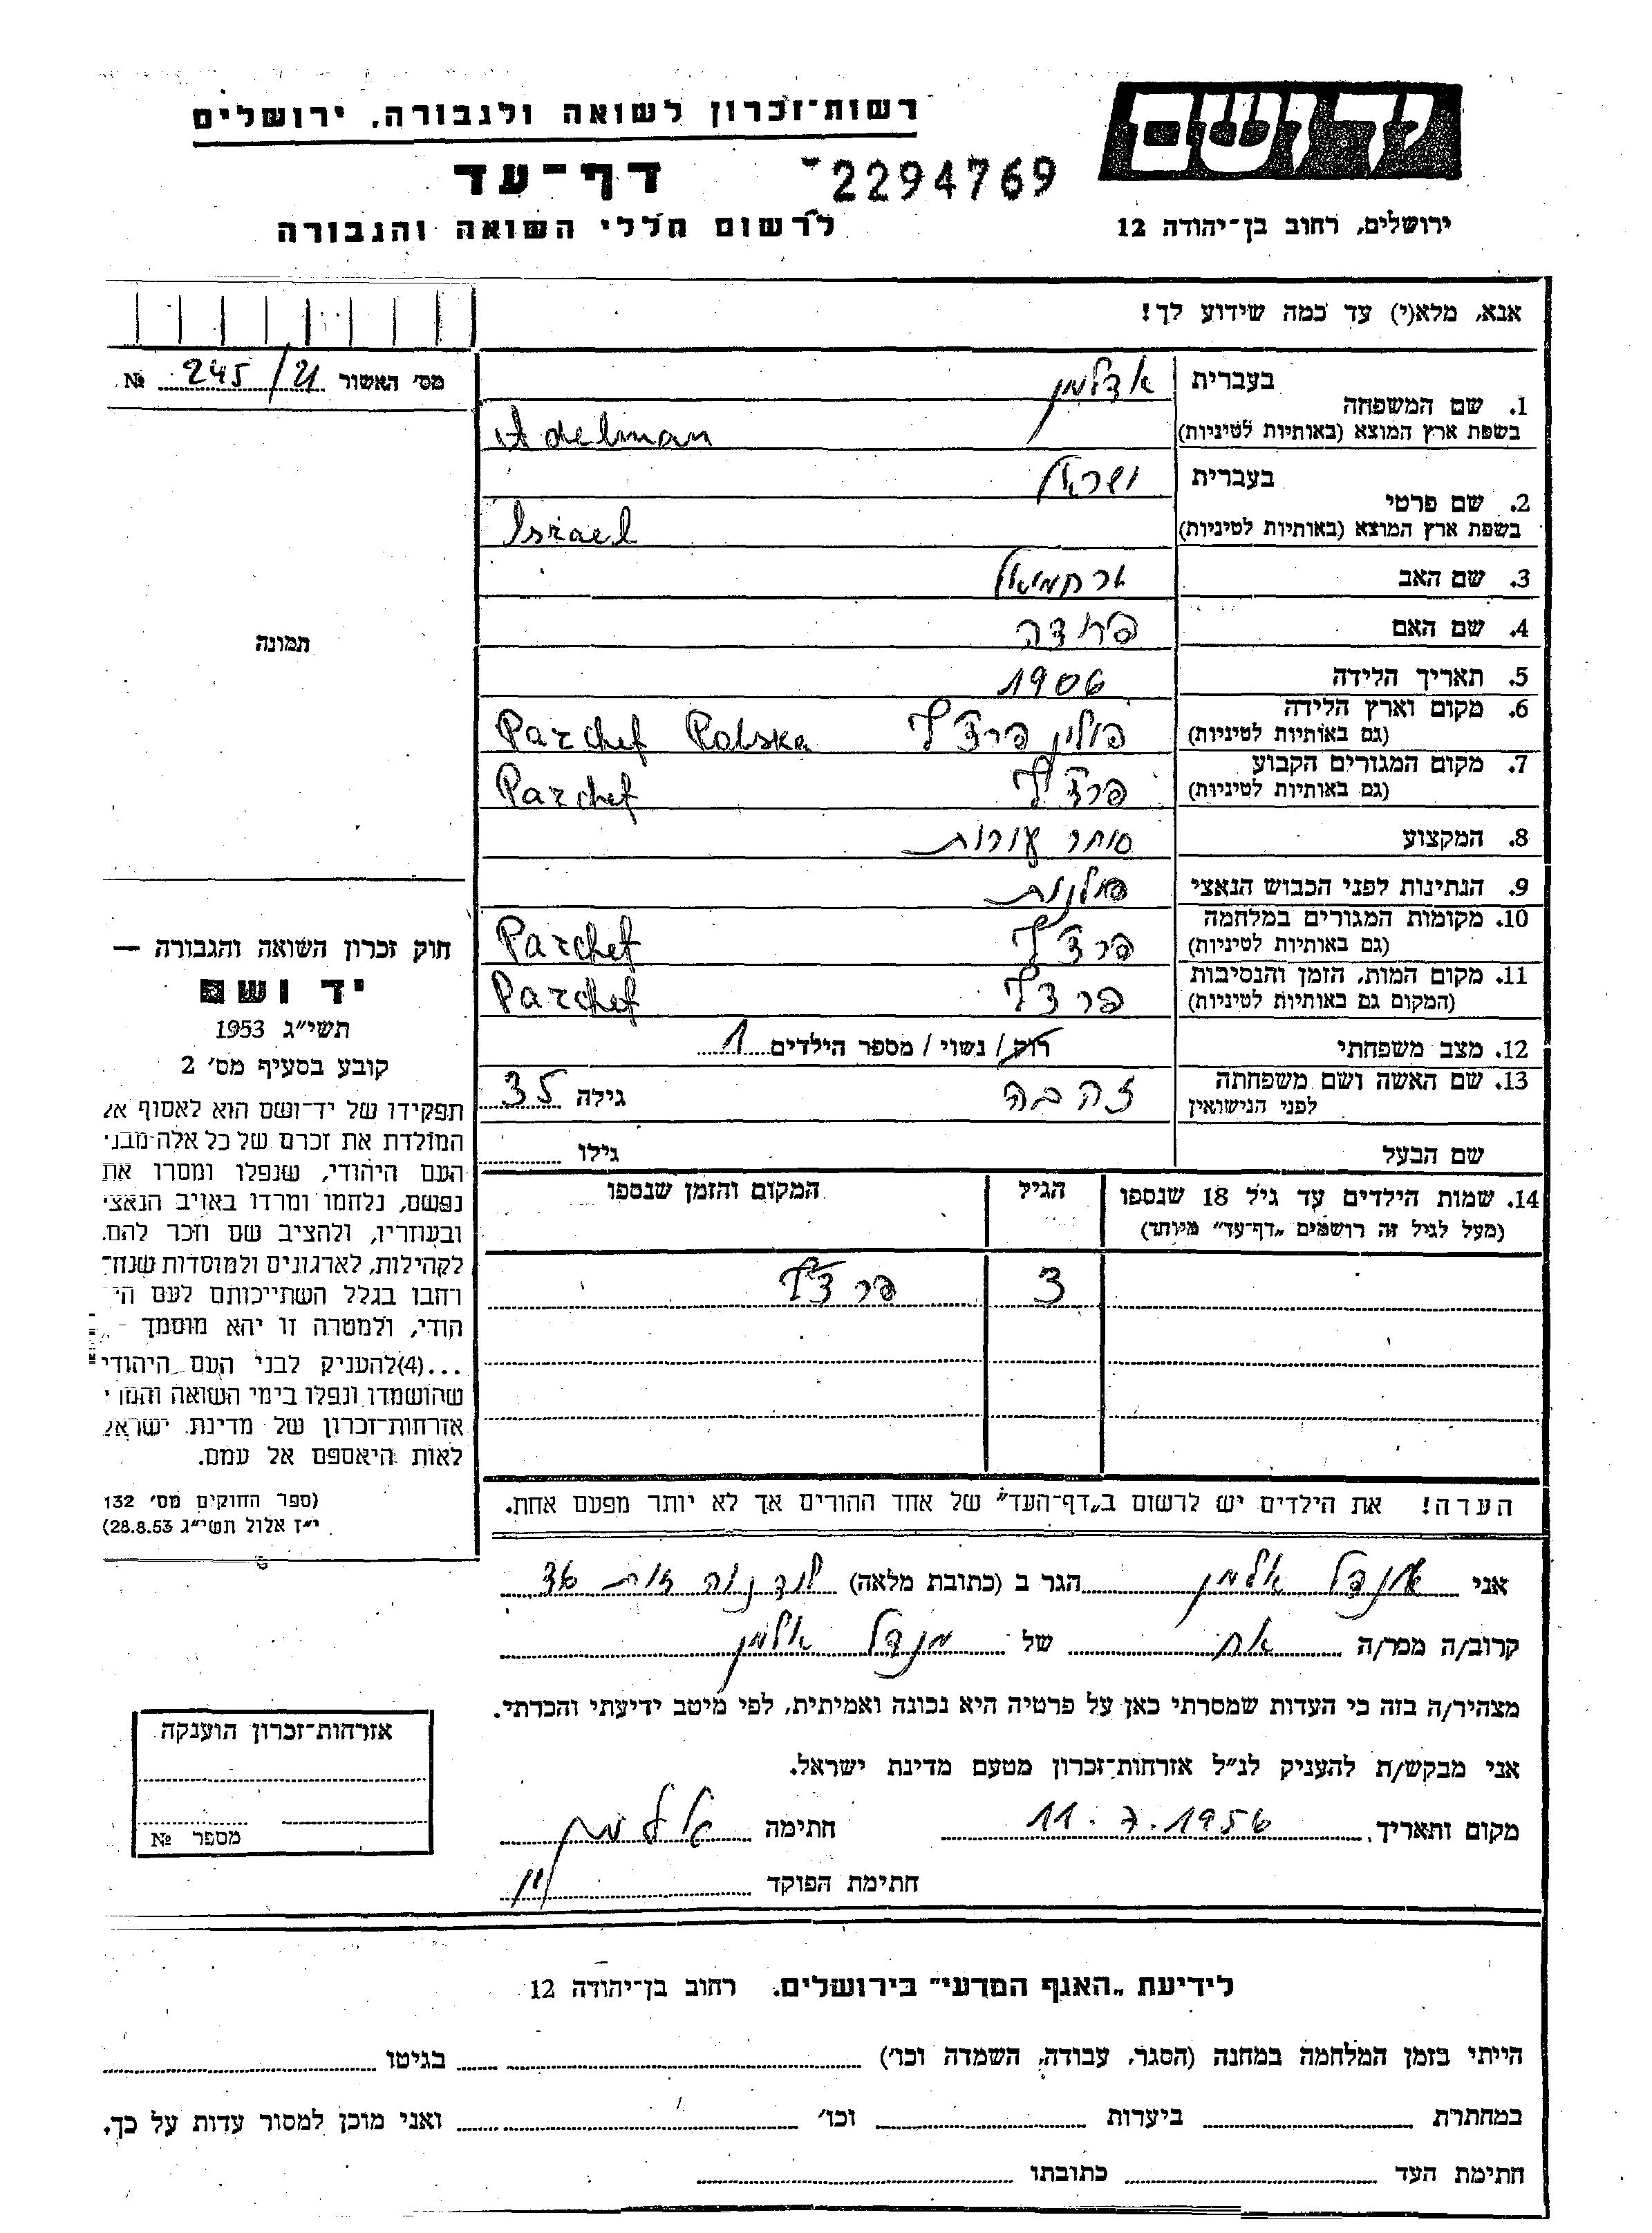 יד ושם
רשות־זכרון לשואה ולגבורה, ירושלים
דף־עד 2294769
ירושלים, רחוב בן־יהודה 12
לרשום חללי השואה והגבורה
אנא, מלא(י) עד כמה שידוע לך!
מס׳ האשור 245/21 №
1. שם המשפחה
בעברית אדלמן
בשפת ארץ המוצא (באותיות לטיניות) Adelman
2. שם פרטי
בעברית ישראל
בשפת ארץ המוצא (באותיות לטיניות) Israel
3. שם האב ירחמיאל
4. שם האם
5. תאריך הלידה 1906
6. מקום וארץ הלידה
(גם באותיות לטיניות) פולין פרצ׳ף Parchef Polska
7. מקום המגורים הקבוע
(גם באותיות לטיניות) פרצ׳ף Parchef
8. המקצוע סוחר עורות
9. הנתינות לפני הכבוש הנאצי פולנית
10. מקומות המגורים במלחמה
(גם באותיות לטיניות) פרצ׳ף Parchef
11. מקום המות, הזמן והנסיבות
(המקום גם באותיות לטיניות) פרצ׳ף Parchef
12. מצב משפחתי רוק/ נשוי / מספר הילדים 1
13. שם האשה ושם משפחתה
לפני הנישואין זהבה גילה 35
שם הבעל גילו
14. שמות הילדים עד גיל 18 שנספו
(מעל לגיל זה רושמים „דף־עד” מיוחד)
הגיל
המקום והזמן שנספו
3 פרצ׳ף
הערה! את הילדים יש לרשום ב„דף־העד” של אחד ההורים אך לא יותר מפעם אחת.
תמונה
חוק זכרון השואה והגבורה —
יד ושם
תשי״ג 1953
קובע בסעיף מס׳ 2
תפקידו של יד־ושם הוא לאסוף אל
המולדת את זכרם של כל אלה מבני
העם היהודי, שנפלו ומסרו את
נפשם, נלחמו ומרדו באויב הנאצי
ובעוזריו, ולהציב שם וזכר להם,
לקהילות, לארגונים ולמוסדות שנח־
רחבו בגלל השתייכותם לעם הי־
הודי, ולמטרה זו יהא מוסמך —
...(4)להעניק לבני העם היהודי
שהושמדו ונפלו בימי השואה והמרי
אזרחות־זכרון של מדינת ישראל
לאות היאספם אל עמם.
(ספר החוקים מס׳ 132
י״ז אלול תשי״ג 28.8.53)
אני מנדל אלמן הגר ב (כתובת מלאה)
קרוב/ה מכר/ה אח של מנדל אלמן
מצהיר/ה בזה כי העדות שמסרתי כאן על פרטיה היא נכונה ואמיתית, לפי מיטב ידיעתי והכרתי.
אני מבקש/ת להעניק לנ״ל אזרחות־זכרון מטעם מדינת ישראל.
מקום ותאריך 11.7.1956 חתימה אלמן
חתימת הפוקד
אזרחות־זכרון הוענקה
מספר №
לידיעת „האגף המדעי” בירושלים. רחוב בן־יהודה 12
הייתי בזמן המלחמה במחנה (הסגר, עבודה, השמדה וכו׳) בגיטו
במחתרת ביערות וכו׳ ואני מוכן למסור עדות על כך.
חתימת העד כתובתו